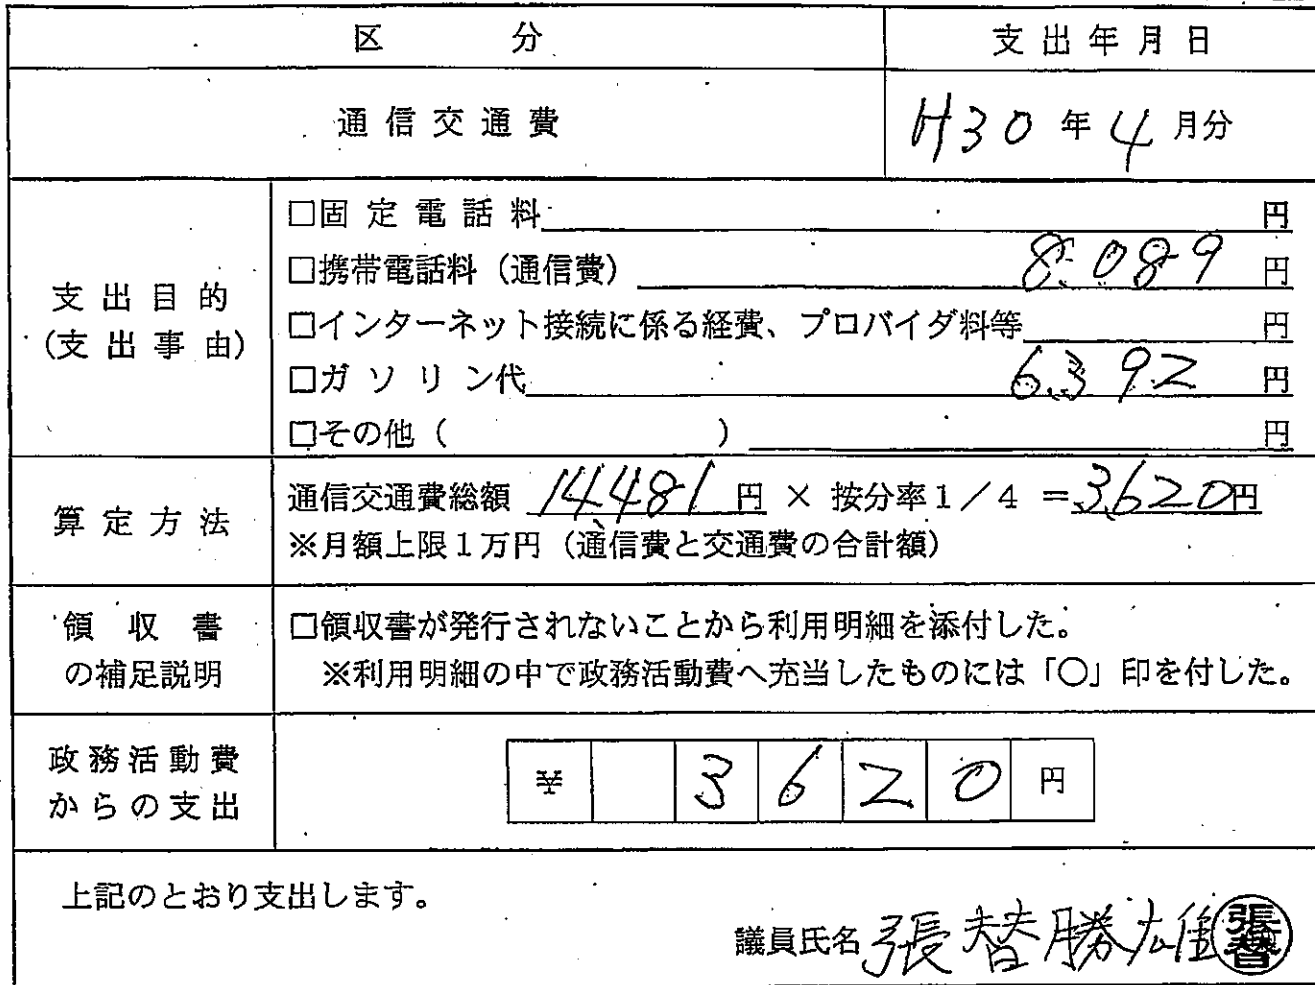 区 分 支出年月日
通信交通費 H30年4月分
支出目的
(支出事由)
□固定電話料 円
□携帯電話料(通信費) 8,089 円
□インターネット接続に係る経費、プロバイダ料等 円
□ガソリン代 6,392 円
□その他( ) 円
算定方法
通信交通費総額 14,481円 × 按分率1/4 =3,620円
※月額上限1万円(通信費と交通費の合計額)
領収書
の補足説明
□領収書が発行されないことから利用明細を添付した。
※利用明細の中で政務活動費へ充当したものには「○」印を付した。
政務活動費
からの支出
¥ 3 6 2 0 円
上記のとおり支出します。
議員氏名 張替勝雄 張替